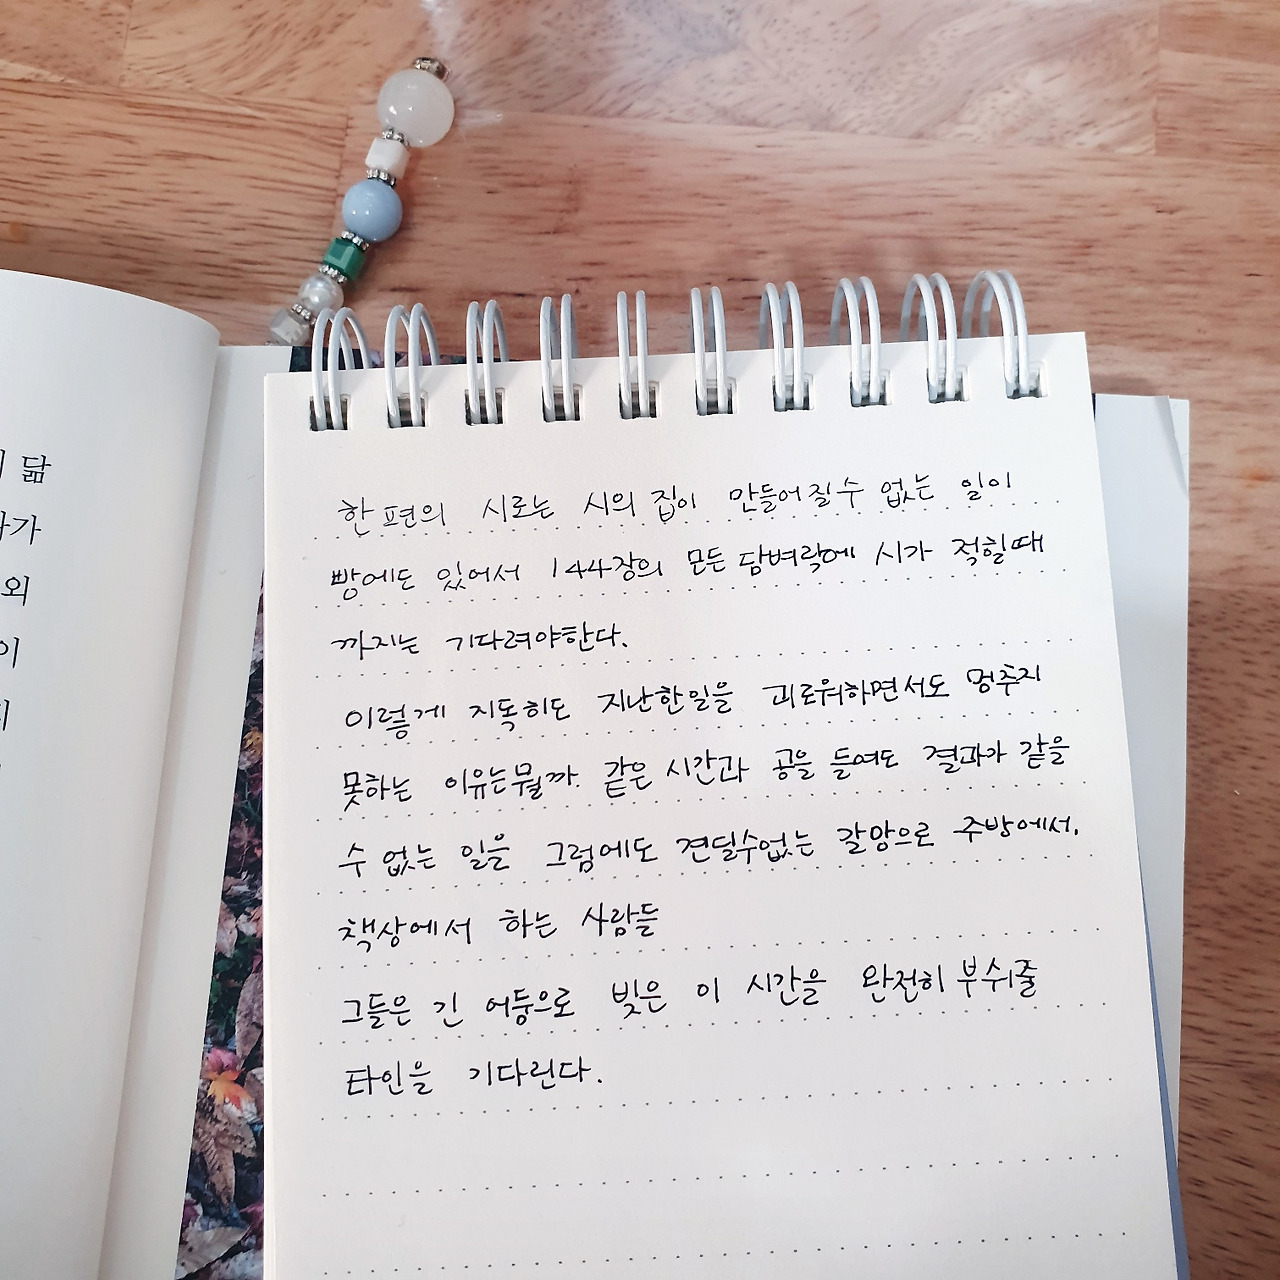 닮
가
외
이
한 편의 시로는 시의 집이 만들어질 수 없는 일이
빵에도 있어서 144장의 모든 담벼락에 시가 적힐때
까지는 기다려야한다.
이렇게 지독히도 지난한일을 괴로워하면서도 멈추지
못하는 이유는뭘까. 같은 시간과 공을 들여도 결과가 같을
수 없는 일을 그럼에도 견딜수없는 갈망으로 주방에서,
책상에서 하는 사람들
그들은 긴 어둠으로 빚은 이 시간을 완전히 부숴줄
타인을 기다린다.